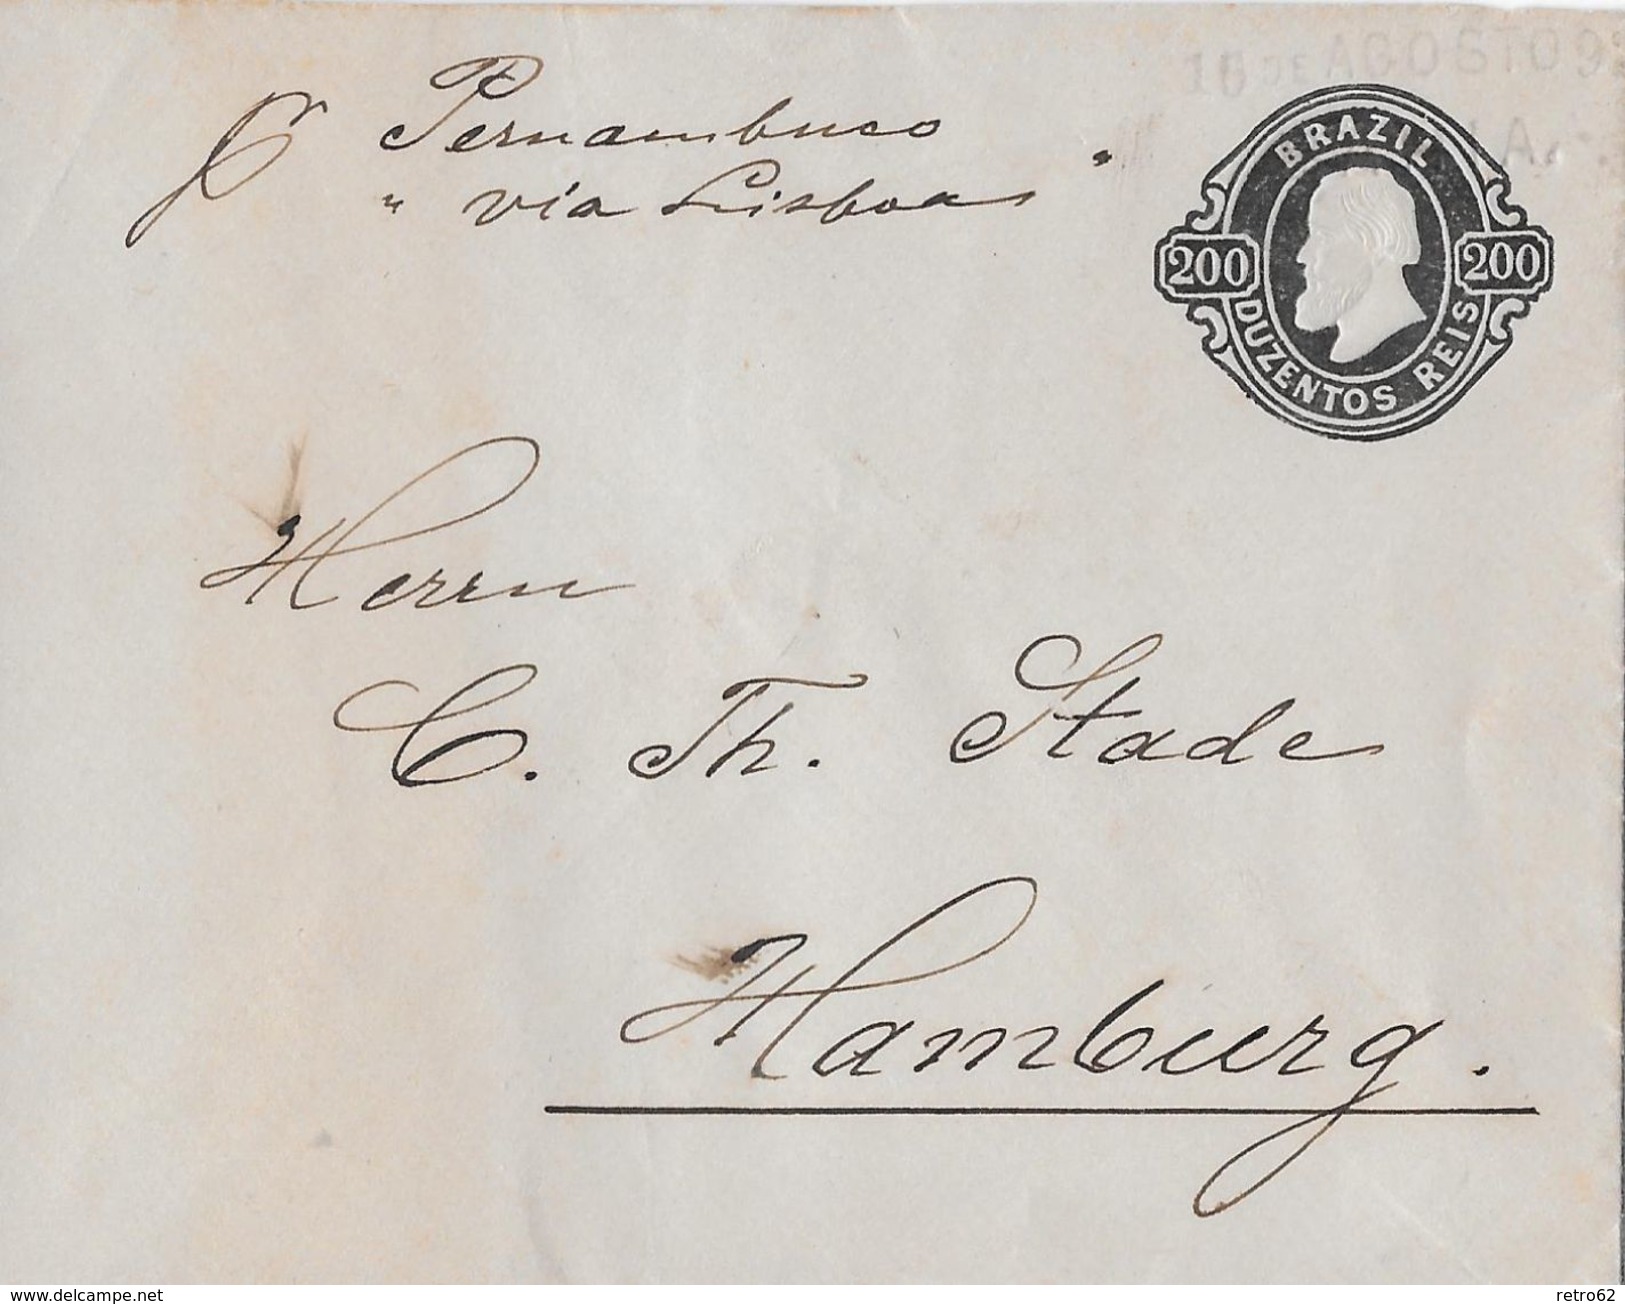 pr "Pernambuco"
" via Lisboa
16 DE AGOSTO 9
BRAZIL
200 200
DUZENTOS REIS
Herrn
C. Th. Stade
Hamburg.
delcampe.net
retro62